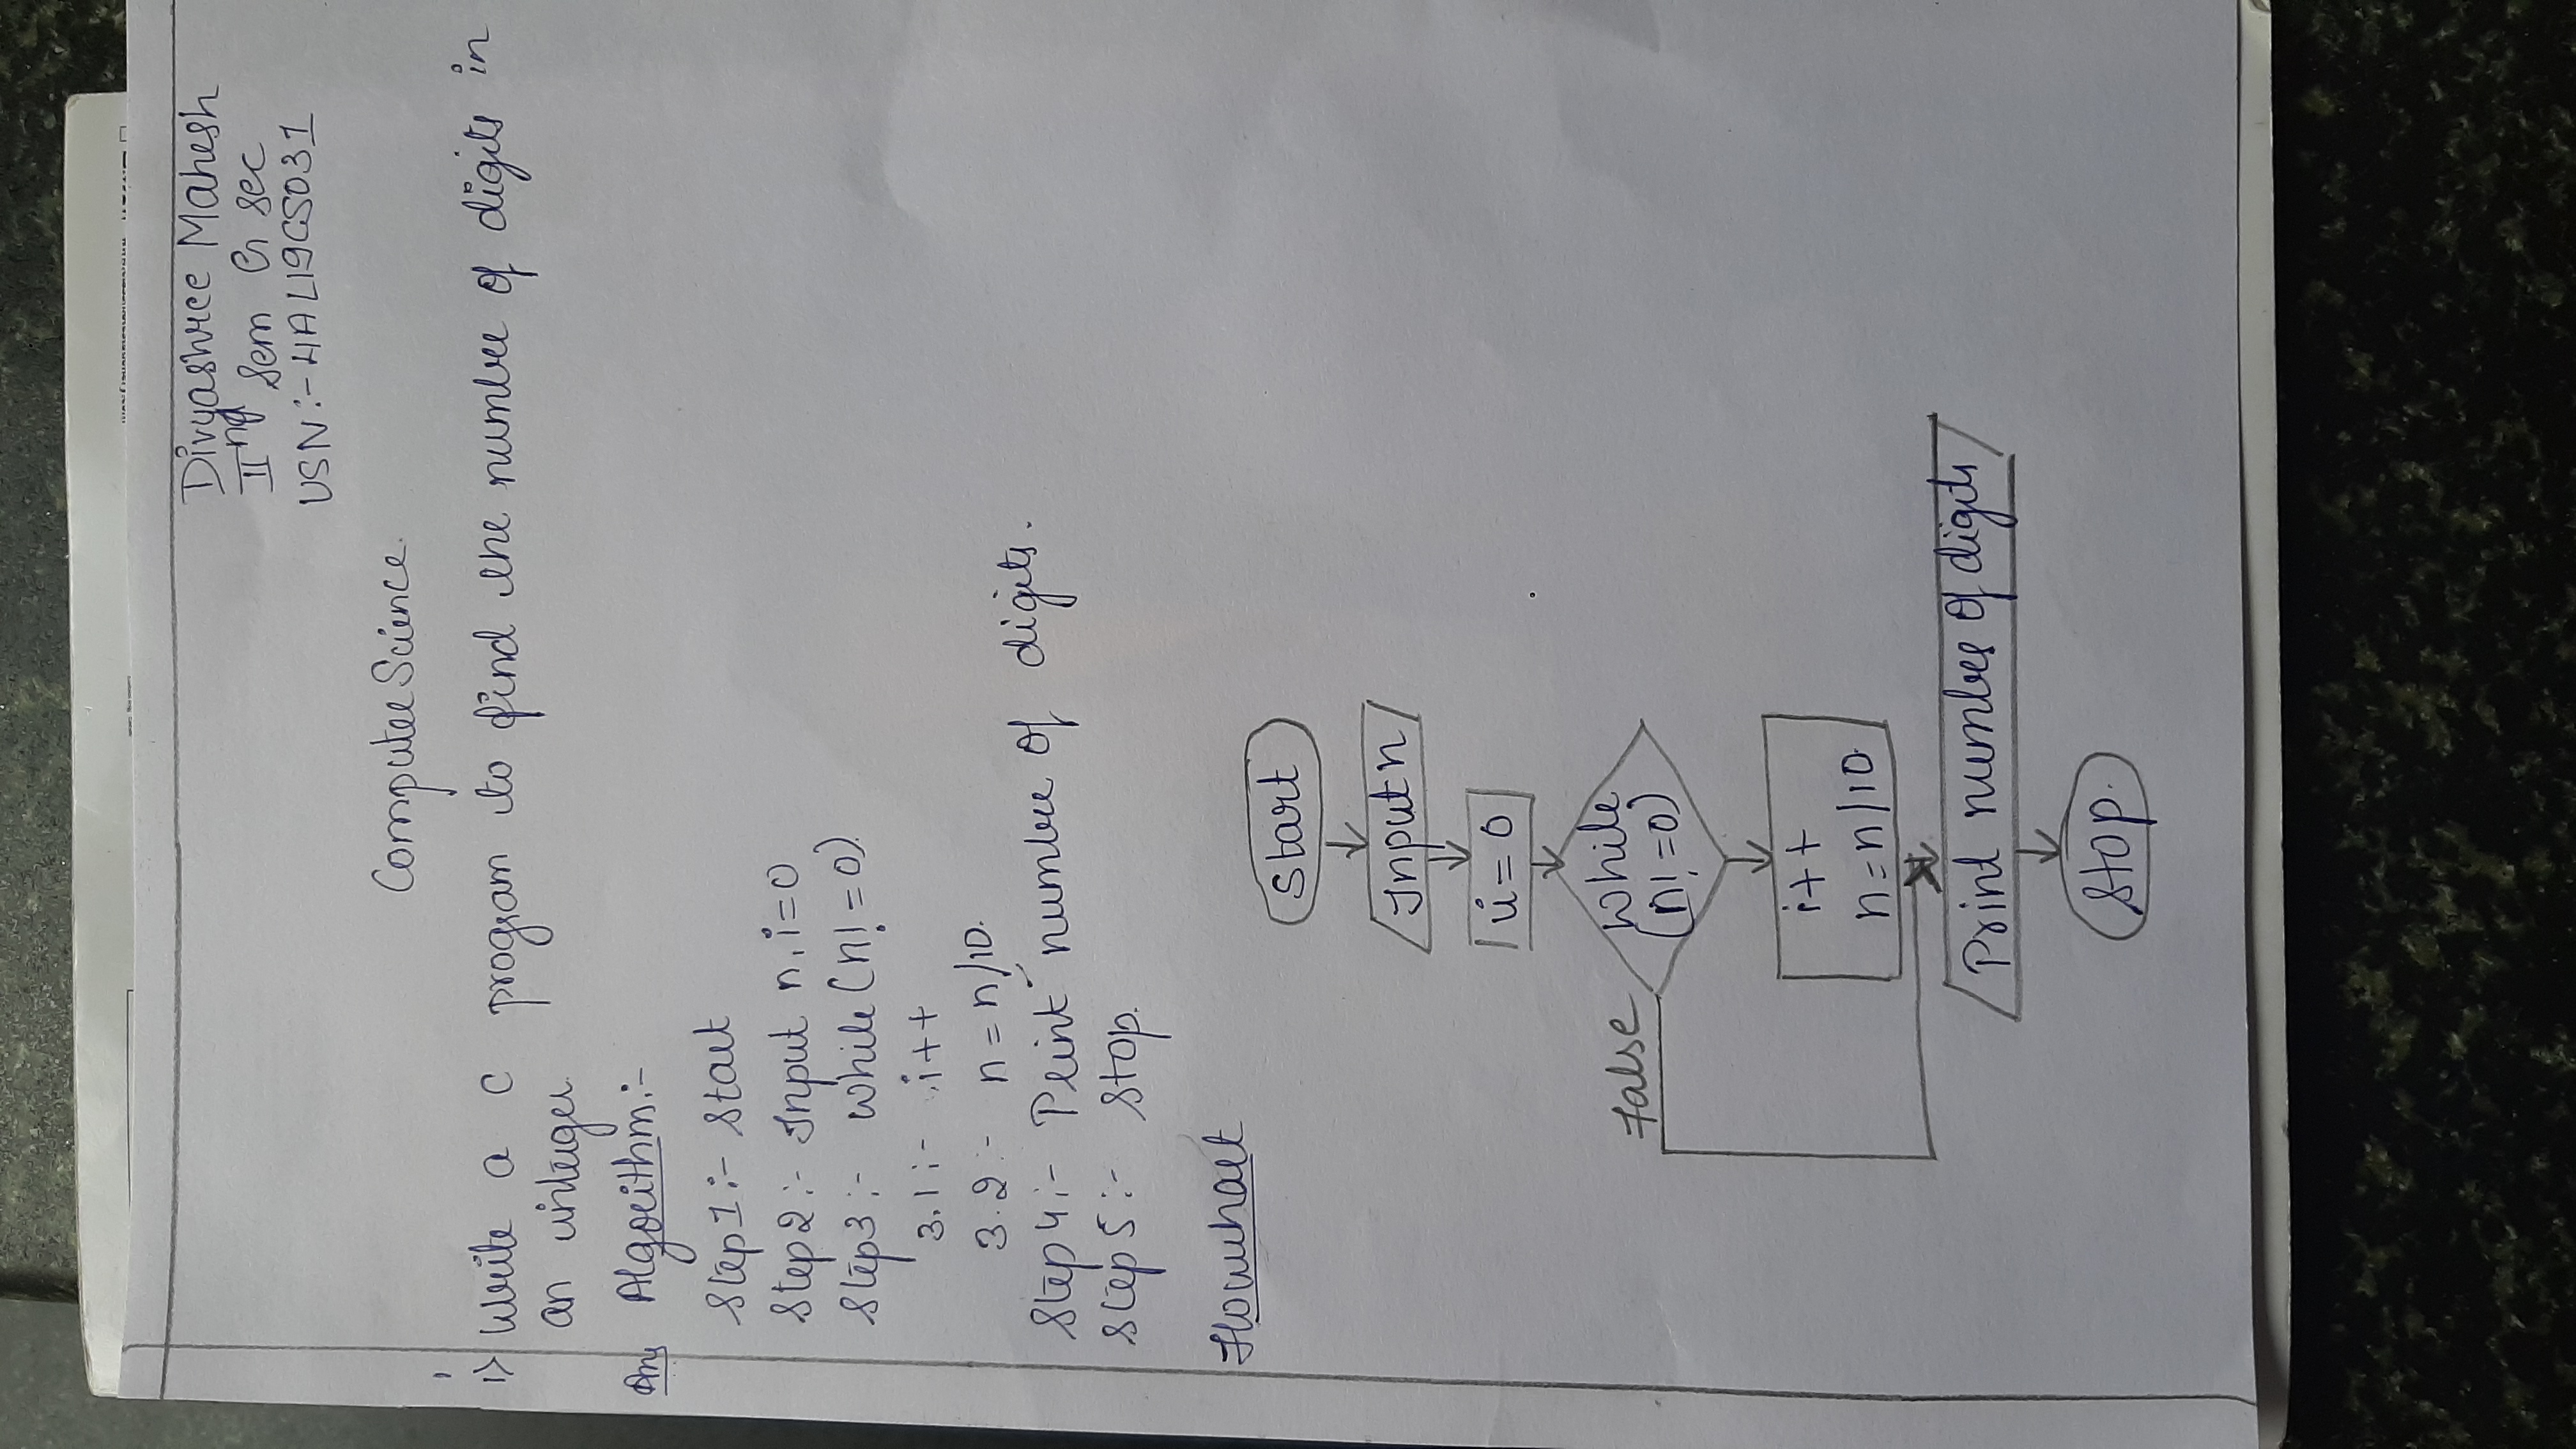 Divyashree Mahesh
IInd Sem G sec
USN:- 4AL19CS031
Computer Science.
1) Write a C program to find the number of digits in
an integer.
Ans Algorithm:-
Step1:- Start
Step2:- Input n, i=0
Step3:- While (n!=0)
3.1:- i++
3.2:- n=n/10.
Step4:- Print number of digits.
Step5:- Stop.
Flowchart
Start
Input n
i=0
False
While
(n!=0)
i++
n=n/10
Print number of digits
Stop.